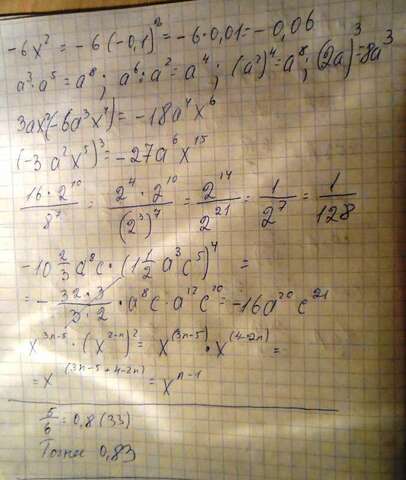 -6x² = -6(-0,1)² = -6·0,01 = -0,06
a³·a⁵ = a⁸; a⁶:a² = a⁴; (a²)⁴ = a⁸; (2a)³ = 8a³
3ax²(-6a³x⁴) = -18a⁴x⁶
(-3a²x⁵)³ = -27a⁶x¹⁵
16·2¹⁰/8⁷ = 2⁴·2¹⁰/(2³)⁷ = 2¹⁴/2²¹ = 1/2⁷ = 1/128
-10 2/3 a⁸c·(1 1/2 a³c⁵)⁴ =
= -32·3/3·2·a⁸c·a¹²c²⁰ = -16a²⁰c²¹
x³ⁿ⁻⁵·(x²⁻ⁿ)² = x⁽³ⁿ⁻⁵⁾·x⁽⁴⁻²ⁿ⁾ =
= x⁽³ⁿ⁻⁵⁺⁴⁻²ⁿ⁾ = xⁿ⁻¹
5/6 = 0,8(33)
0,83